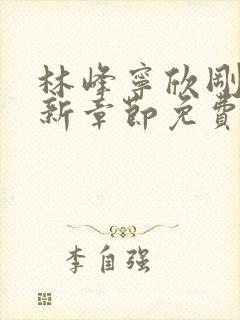 林峰寧欣剛
新章節免費
李自强